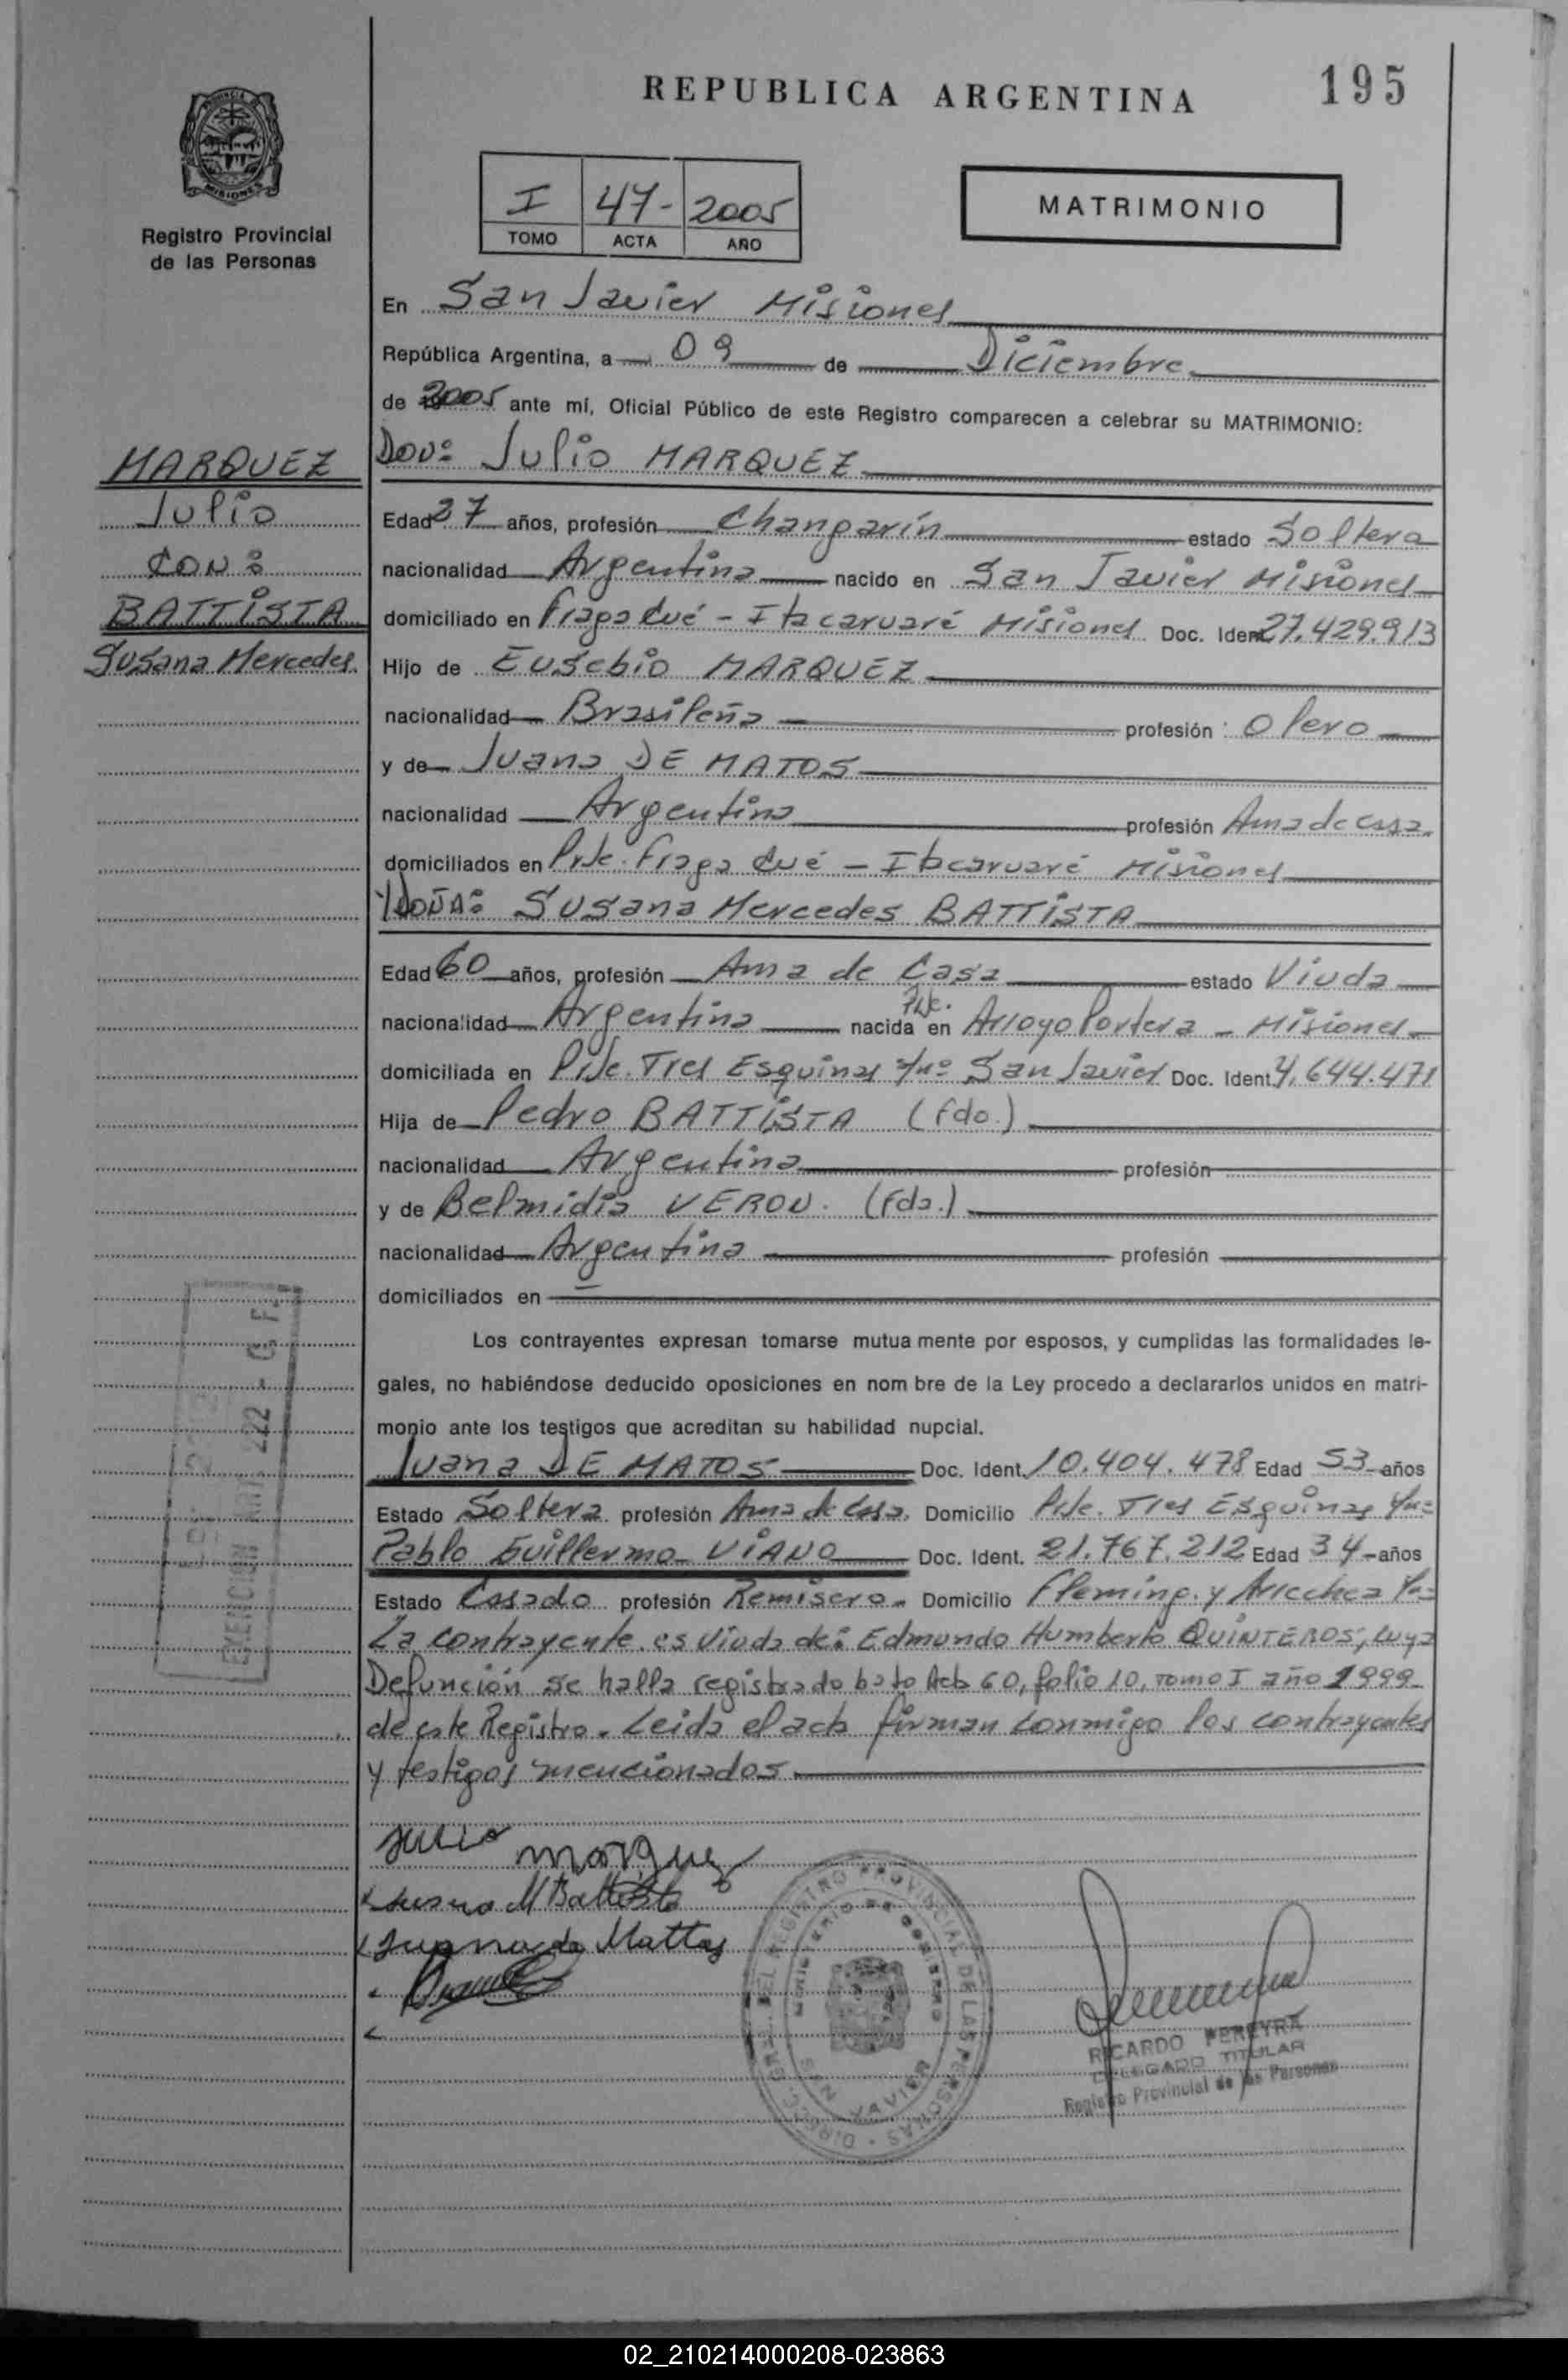 REPUBLICA ARGENTINA
195
PROVINCIA DE
MISIONES
Registro Provincial
de las Personas
I 47- 2005
TOMO ACTA AÑO
MATRIMONIO
En San Javier Misiones
República Argentina, a 09 de Diciembre
de 2005 ante mí, Oficial Público de este Registro comparecen a celebrar su MATRIMONIO:
MARQUEZ
Julio
CON:
BATTISTA
Susana Mercedes
DON: Julio MARQUEZ
Edad 27 años, profesión Changarín estado Soltera
nacionalidad Argentina nacido en San Javier Misiones
domiciliado en Fraga Cué - Itacaruaré Misiones Doc. Ident. 27.429.913
Hijo de Eusebio MARQUEZ
nacionalidad Brasileña profesión: Olero
y de Juana DE MATOS
nacionalidad Argentina profesión Ama de casa
domiciliados en Pje. Fraga Cué - Itacaruaré Misiones
Y DOÑA: Susana Mercedes BATTISTA
Edad 60 años, profesión Ama de Casa estado Viuda
nacionalidad Argentina nacida en Pje. Arroyo Portera - Misiones
domiciliada en Pje. Tres Esquinas San Javier Doc. Ident. 4.644.471
Hija de Pedro BATTISTA (fdo.)
nacionalidad Argentina profesión
y de Belmidia VERON. (fda.)
nacionalidad Argentina profesión
domiciliados en
Los contrayentes expresan tomarse mutua mente por esposos, y cumplidas las formalidades le-
gales, no habiéndose deducido oposiciones en nom bre de la Ley procedo a declararlos unidos en matri-
monio ante los testigos que acreditan su habilidad nupcial.
Juana DE MATOS Doc. Ident. 10.404.478 Edad 53 años
Estado Soltera profesión Ama de Casa. Domicilio Pje. Tres Esquinas
Pablo Guillermo VIANO Doc. Ident. 21.767.212 Edad 34-años
Estado Casado profesión Remisero. Domicilio Fleming y
La contrayente es Viuda de: Edmundo Humberto QUINTEROS, cuya
Defunción se halla registrado bajo Acta 60, folio 10, Tomo I año 1999
de este Registro. Leida el acta firman conmigo los contrayentes
y testigos mencionados
Julio marquez
Susana M Battista
Juana de Mattos
DIRECC. GRAL. DEL REGISTRO PROVINCIAL DE LAS PERSONAS
MINISTERIO DE GOBIERNO
SAN JAVIER
RICARDO PEREYRA
DELEGADO TITULAR
Registro Provincial de las Personas
02_210214000208-023863